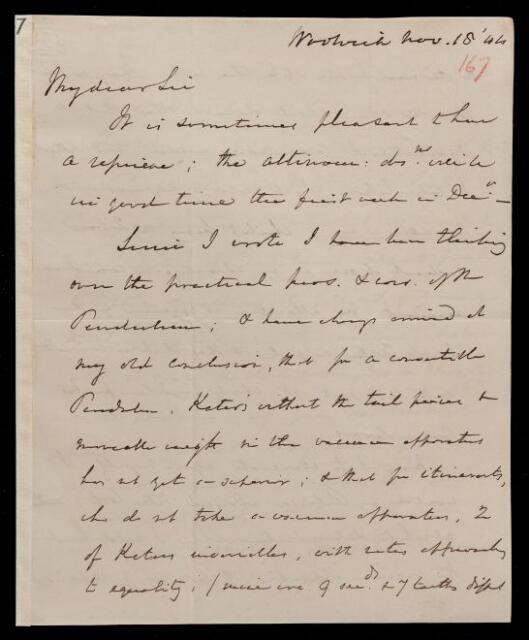 7
Woolwich Nov. 18 '44
167
My dear Sir
It is sometimes pleasant to have
a reprieve; the
in good time the first week in Decr.
Since I wrote I have been thinking
over the practical pros. & cons. of the
Pendulum; & have always arrived at
my old conclusion, that for a convertible
Pendulum, Kater's without the tail pieces &
moveable weight in the vacuum apparatus
has not yet a superior; & that for itinerants,
who do not take a vacuum apparatus, 2
of Katers invariables, with rates approaching
to equality; / mine are 9 & 7 tenths